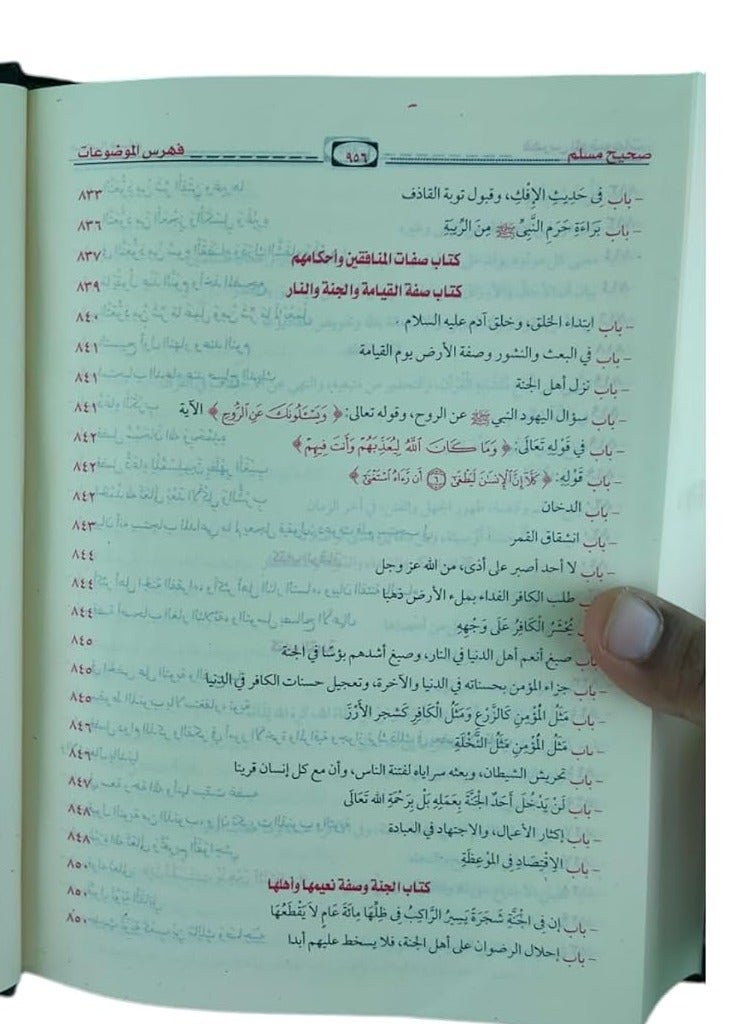 صحيح مسلم ٩٥٦ فهرس الموضوعات
- باب فى حَدِيثِ الإِفْكِ، وقبول توبة القاذف ٨٣٣
- باب بَرَاءَةِ حَرَمِ النَّبِىِّ ﷺ مِنَ الرِّيبَةِ ٨٣٦
كتاب صفات المنافقين وأحكامهم ٨٣٧
كتاب صفة القيامة والجنة والنار ٨٣٩
- باب ابتداء الخلق، وخلق آدم عليه السلام ٨٤٠
- باب في البعث والنشور وصفة الأرض يوم القيامة ٨٤١
- باب نزل أهل الجنة ٨٤١
- باب سؤال اليهود النبي ﷺ عن الروح، وقوله تعالى: ﴿ وَيَسْـَٔلُونَكَ عَنِ ٱلرُّوحِ ﴾ الآية ٨٤١
- باب في قَولِهِ تَعَالَى: ﴿ وَمَا كَانَ ٱللَّهُ لِيُعَذِّبَهُمْ وَأَنتَ فِيهِمْ ﴾ ٨٤٢
- باب قَولِهِ: ﴿ كَلَّآ إِنَّ ٱلْإِنسَٰنَ لَيَطْغَىٰٓ ٦ أَن رَّءَاهُ ٱسْتَغْنَىٰٓ ﴾ ٨٤٢
- باب الدخان ٨٤٢
- باب انشقاق القمر ٨٤٣
- باب لا أحد أصبر على أذى، من الله عز وجل ٨٤٤
طلب الكافر الفداء بملء الأرض ذهبا ٨٤٤
يُحْشَرُ الْكَافِرُ عَلَى وَجْهِهِ ٨٤٤
- باب صبغ أنعم أهل الدنيا في النار، وصبغ أشدهم بؤسًا في الجنة ٨٤٥
- باب جزاء المؤمن بحسناته في الدنيا والآخرة، وتعجيل حسنات الكافر في الدنيا ٨٤٥
- باب مَثَلُ المُؤْمِنِ كَالزَّرْعِ وَمَثَلُ الْكَافِرِ كَشَجَرِ الأَرْزِ ٨٤٥
- باب مَثَلُ المُؤْمِنِ مَثَلُ النَّخْلَةِ ٨٤٦
- باب تحريش الشيطان، وبعثه سراياه لفتنة الناس، وأن مع كل إنسان قرينا ٨٤٦
- باب لَنْ يَدْخُلَ أَحَدٌ الْجَنَّةَ بِعَمَلِهِ بَلْ بِرَحْمَةِ الله تَعَالَى ٨٤٧
- باب إكثار الأعمال، والاجتهاد في العبادة ٨٤٨
- باب الاِقْتِصَادِ فِى المَوْعِظَةِ ٨٤٨
كتاب الجنة وصفة نعيمها وأهلها ٨٥٠
- باب إن فِى الْجَنَّةِ شَجَرَةً يَسِيرُ الرَّاكِبُ فِى ظِلِّهَا مِائَةَ عَامٍ لاَ يَقْطَعُهَا ٨٥٠
- باب إحلال الرضوان على أهل الجنة، فلا يسخط عليهم أبدا ٨٥٠